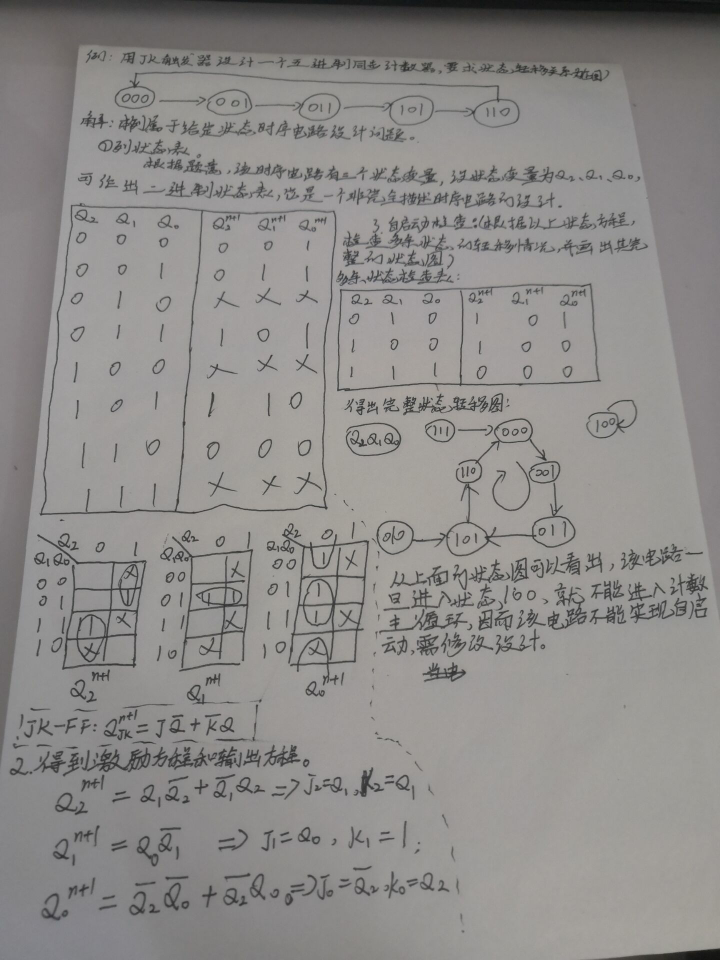 例:用JK触发器设计一个五进制同步计数器,要求状态转移关系如图)
000 001 011 101 110
解:本例属于给定状态时序电路设计问题。
①列状态表。
根据题意,该时序电路有三个状态变量,设状态变量为Q₂、Q₁、Q₀,
可作出二进制状态表,也是一个非完全描述时序电路的设计.
Q₂ Q₁ Q₀ Q₂ⁿ⁺¹ Q₁ⁿ⁺¹ Q₀ⁿ⁺¹
0 0 0 0 0 1
0 0 1 0 1 1
0 1 0 × × ×
0 1 1 1 0 1
1 0 0 × × ×
1 0 1 1 1 0
1 1 0 0 0 0
1 1 1 × × ×
Q₂ 0 1
Q₁Q₀
00 ×
01 1
11 1 ×
10 ×
Q₂ⁿ⁺¹
Q₂ 0 1
Q₁Q₀
00 ×
01 1 1
11 ×
10 ×
Q₁ⁿ⁺¹
Q₂ 0 1
Q₁Q₀
00 1 ×
01 1
11 1 ×
10 ×
Q₀ⁿ⁺¹
JK-FF: Qⁿ⁺¹JK = JQ̅ + K̅Q
2.得到激励方程和输出方程。
Q₂ⁿ⁺¹ = Q₁Q̅₂ + Q̅₁Q₂ => J₂=Q₁, K₂=Q₁
Q₁ⁿ⁺¹ = Q₀Q̅₁ => J₁=Q₀, K₁=1;
Q₀ⁿ⁺¹ = Q̅₂Q̅₀ + Q̅₂Q₀。=> J₀=Q̅₂,K₀=Q₂
3.自启动检查:(根据以上状态方程,
检查多余状态的转移情况,并画出其完
整的状态图)
多余状态检查表:
Q₂ Q₁ Q₀ Q₂ⁿ⁺¹ Q₁ⁿ⁺¹ Q₀ⁿ⁺¹
0 1 0 1 0 1
1 0 0 1 0 0
1 1 1 0 0 0
得出完整状态转移图:
Q₂Q₁Q₀ 111 000 100
110 001
010 101 011
从上面的状态图可以看出,该电路一
旦进入状态100,就不能进入计数
主循环,因而该电路不能实现自启
动,需修改设计。